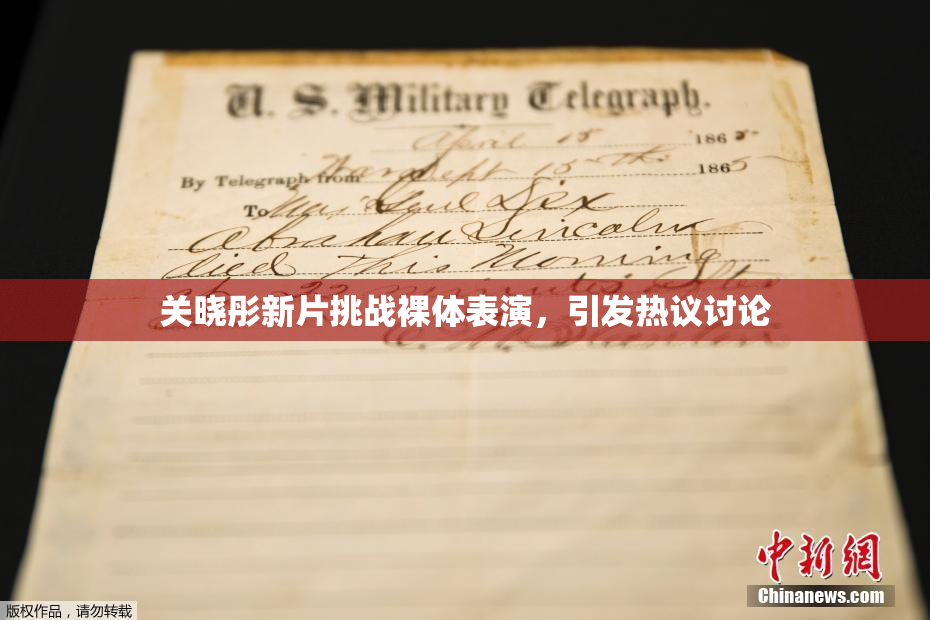 U. S. Military Telegraph.
April 15 1865
By Telegraph from War Dept 15th 1865
To Maj Genl Dix
Abraham Lincoln
died This Morning
22 minutes after
关晓彤新片挑战裸体表演，引发热议讨论
E. M. Stanton
中新网
Chinanews.com
版权作品，请勿转载